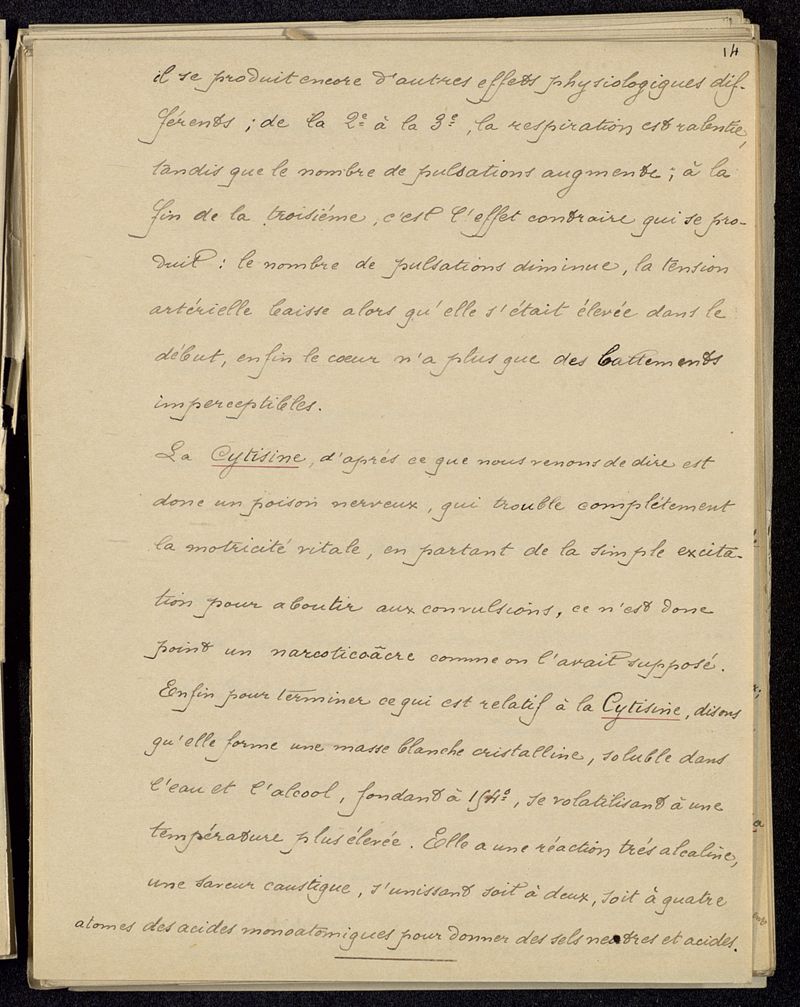 14
il se produit encore d'autres effets physiologiques dif-
férents ; de la 2e à la 3e, la respiration est ralentie,
tandis que le nombre de pulsations augmente ; à la
fin de la troisiéme, c'est l'effet contraire qui se pro-
duit : le nombre de pulsations diminue, la tension
artérielle baisse alors qu'elle s'était élevée dans le
début, enfin le cœur n'a plus que des battements
imperceptibles.
La Cytisine, d'aprés ce que nous venons de dire est
donc un poison nerveux, qui trouble complétement
la motricité vitale, en partant de la simple excita-
tion pour aboutir aux convulsions, ce n'est donc
point un narcoticoâcre comme on l'avait supposé.
Enfin pour terminer ce qui est relatif à la Cytisine, disons
qu'elle forme une masse blanche cristalline, soluble dans
l'eau et l'alcool, fondant à 154°, se volatilisant à une
température plus élevée. Elle a une réaction trés alcaline,
une saveur caustique, s'unissant soit à deux, soit à quatre
atomes des acides monoatomiques pour donner des sels neutres et acides.